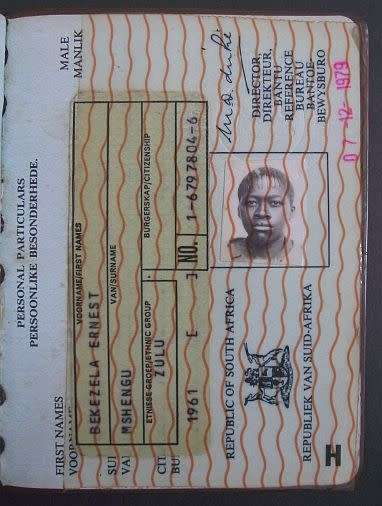 PERSONAL PARTICULARS
PERSOONLIKE BESONDERHEDE.
FIRST NAMES
MALE
MANLIK
VOORNAME/FIRST NAMES
BEKEZELA ERNEST
VAN/SURNAME
MSHENGU
ETNIESE GROEP/ETHNIC GROUP
BURGERSKAP/CITIZENSHIP
ZULU
1961 C
NO. 1-6797804-6
REPUBLIC OF SOUTH AFRICA
REPUBLIEK VAN SUID-AFRIKA
H
DIRECTOR,
DIREKTEUR,
BANTU
REFERENCE
BUREAU
BANTOE-
BEWYSBURO
07-12-1979